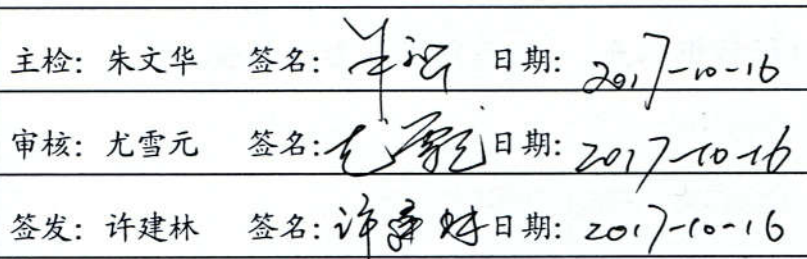 主检: 朱文华 签名: 日期: 2017-10-16
审核: 尤雪元 签名: 尤雪元 日期: 2017-10-16
签发: 许建林 签名: 许建林 日期: 2017-10-16